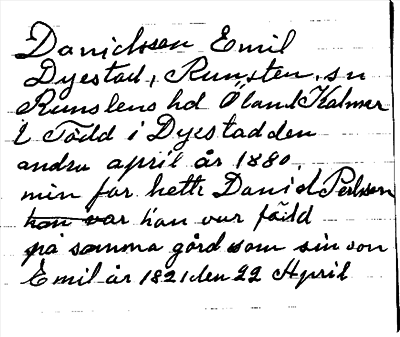 Danielsson Emil
Dyestad, Runsten, sn
Runstens hd Öland Kalmar
L Född i Dyestad den
andra april år 1880.
min far hette Daniel Perlsson
han var han var född
på samma gård som sin son
Emil år 1821 den 22 April